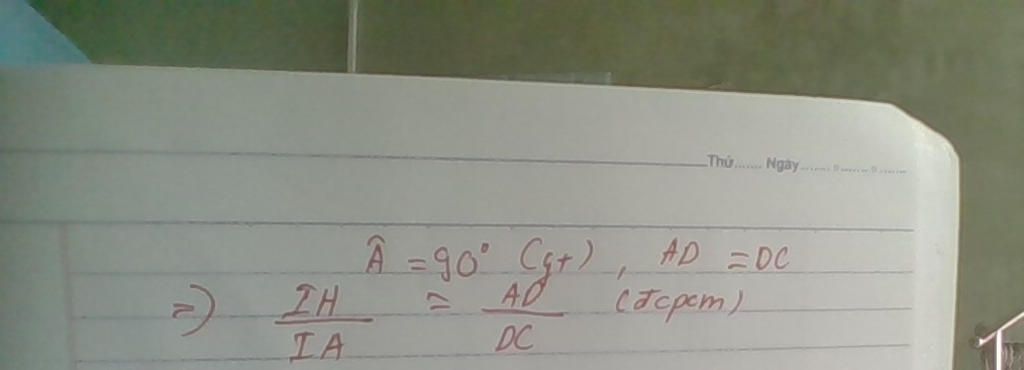 Thứ....... Ngày.......°.......°.......
Â = 90° (gt), AD = DC
=> IH/IA = AD/DC (đcpcm)